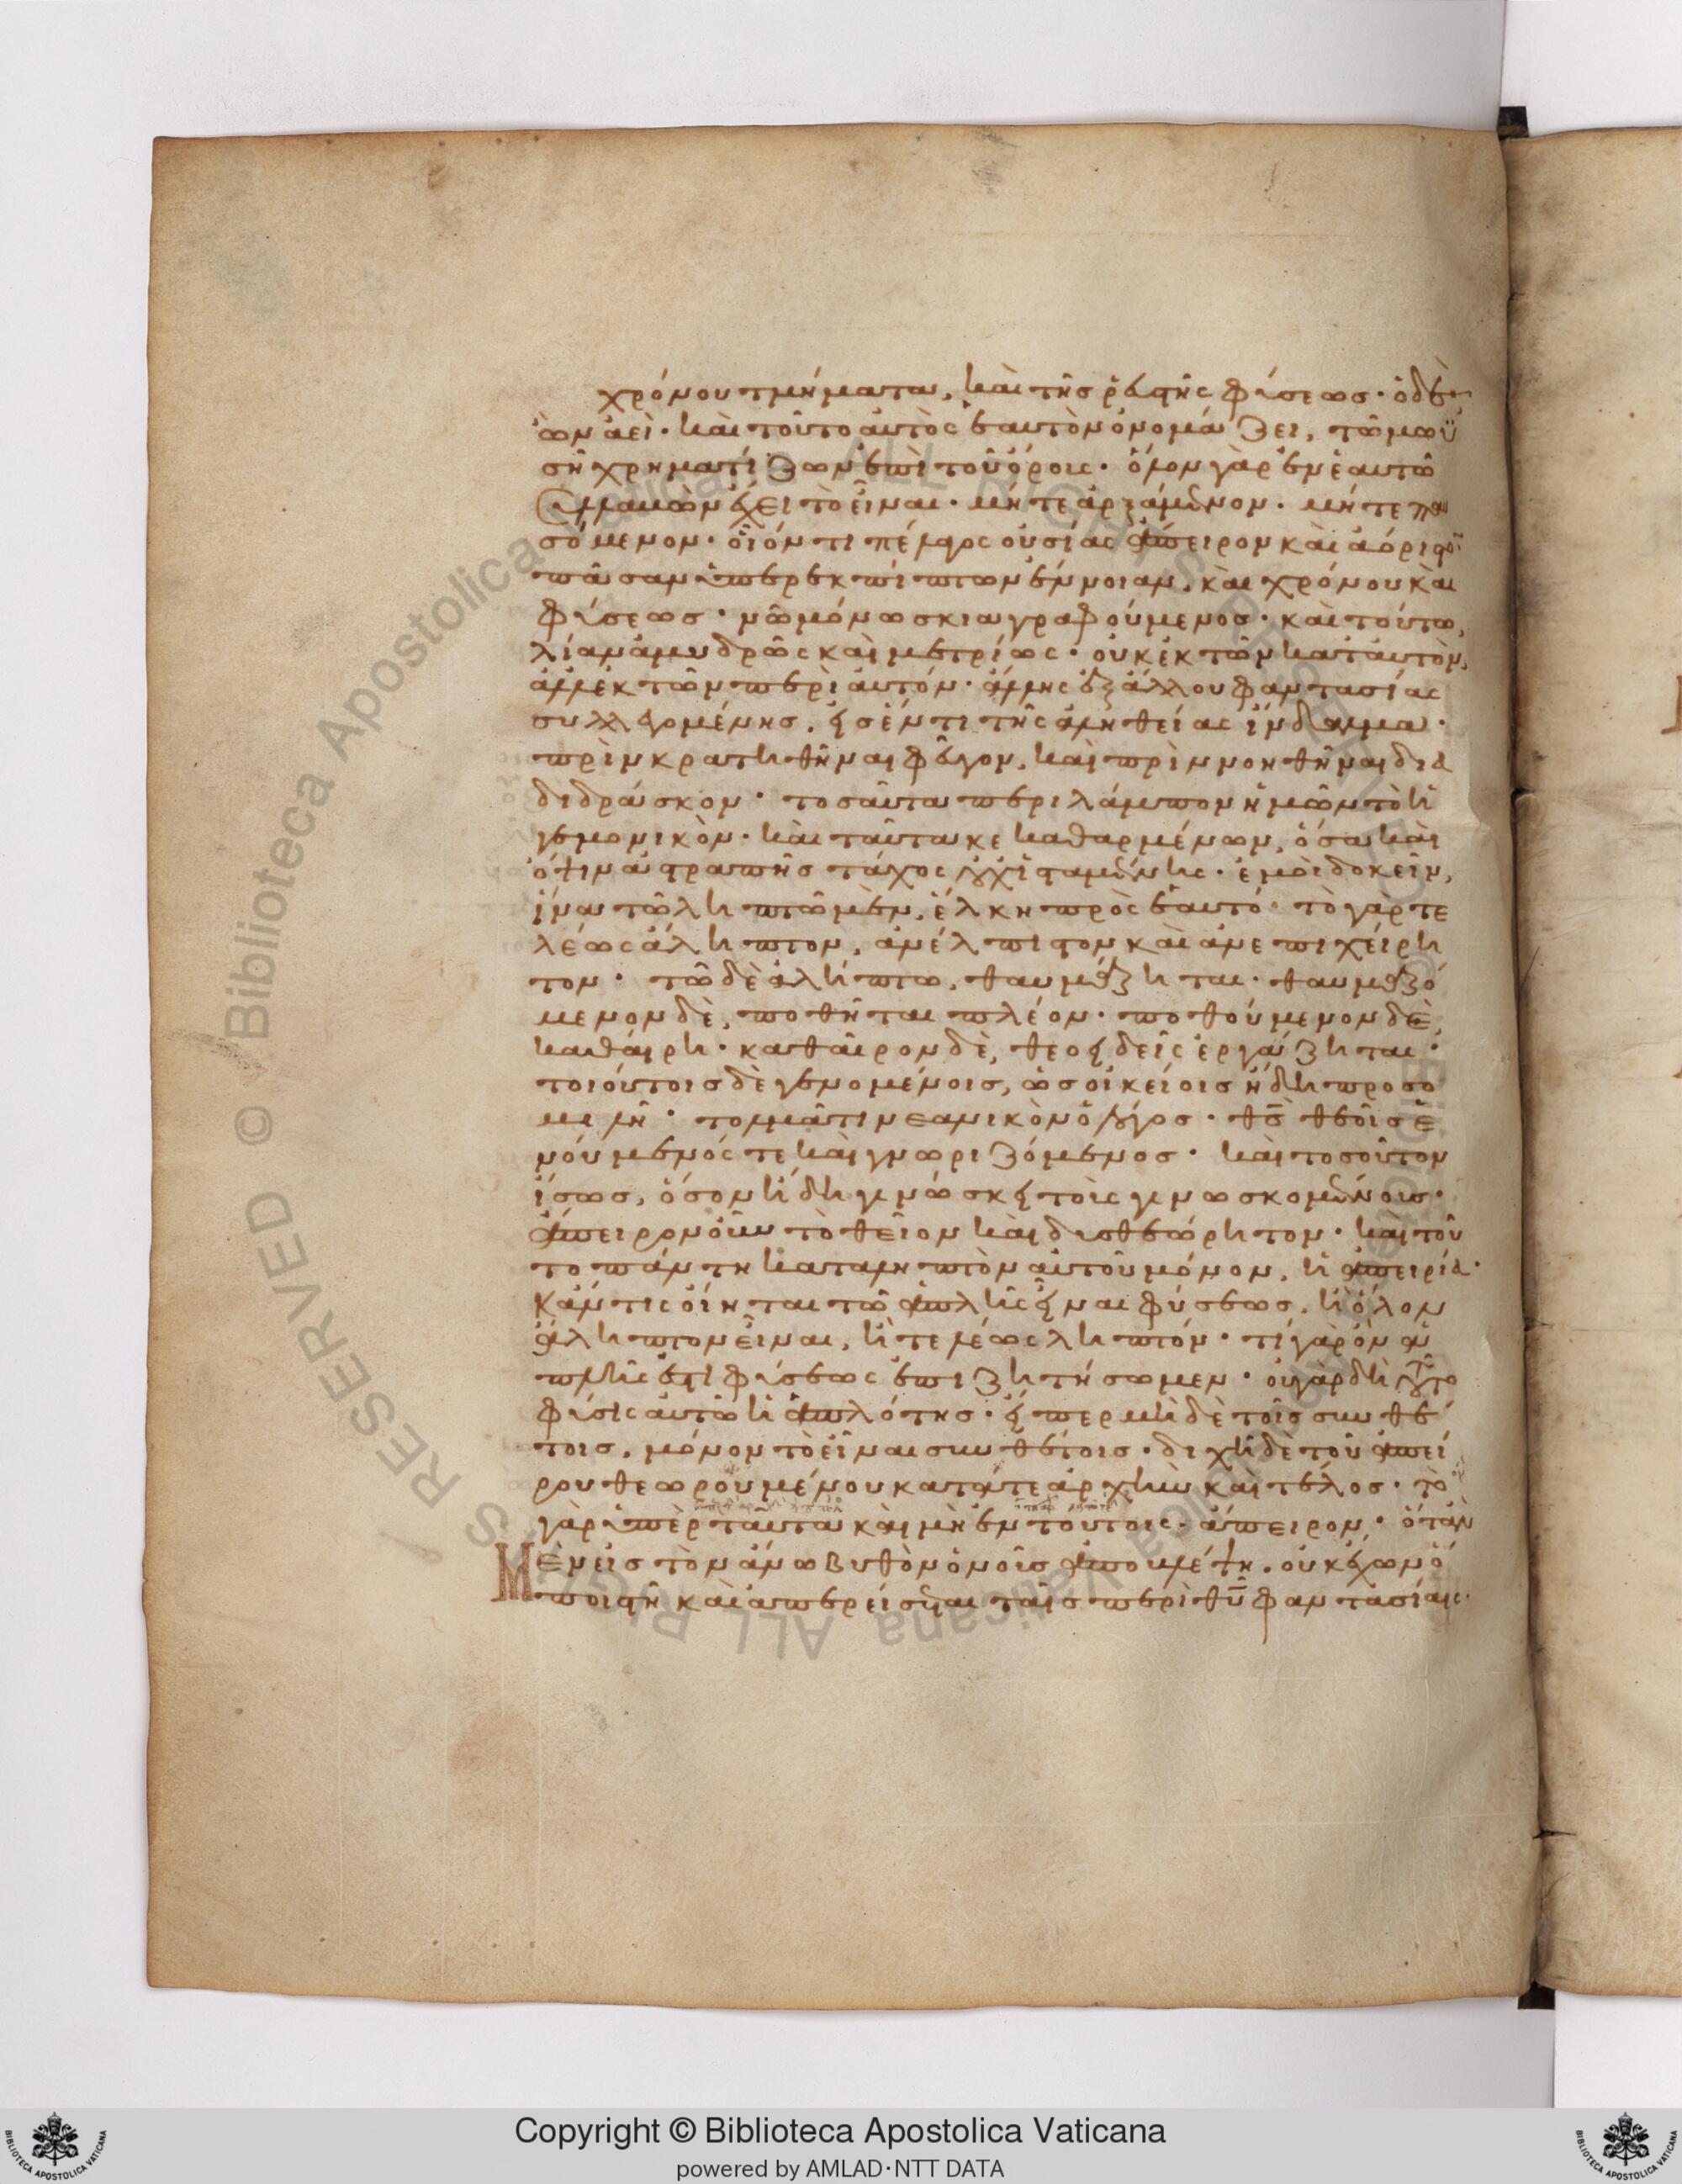 χρόνου τμήματα, καὶ τῆς ῥευστῆς φύσεως· ὁ δὲ
ὢν ἀεὶ· καὶ τοῦτο αὐτὸς ἑαυτὸν ὀνομάζει, τῶ μωϋ
σῆ χρηματίζων ἐπὶ τοῦ ὄρους· ὅλον γὰρ ἐν ἑαυτῶ
συλλαβὼν ἔχει τὸ εἶναι· μήτε ἀρξάμενον· μήτε παυ
σόμενον· οἷόν τι πέλαγος οὐσίας ἄπειρον καὶ ἀόριστον
πᾶσαν ὑπερεκπίπτων ἔννοιαν, καὶ χρόνου καὶ
φύσεως· νῶ μόνω σκιαγραφούμενος· καὶ τούτω,
λίαν ἀμυδρῶς καὶ μετρίως· οὐκ ἐκ τῶν κατ' αὐτὸν,
ἀλλ' ἐκ τῶν περὶ αὐτόν· ἄλλης ἐξ ἄλλου φαντασίας
συλλεγομένης, εἰς ἕν τι τῆς ἀληθείας ἴνδαλμα·
πρὶν κρατηθῆναι φεῦγον, καὶ πρὶν νοηθῆναι δια
διδράσκον· τοσαῦτα περιλάμπον ἡμῶν τὸ ἡ
γεμονικὸν· καὶ ταῦτα κεκαθαρμένων, ὅσα καὶ
ὄψιν ἀστραπῆς τάχος οὐχ ἱσταμένης· ἐμοὶ δοκεῖν,
ἵνα τῶ ληπτῶ μὲν, ἕλκη πρὸς ἑαυτό· τὸ γὰρ τε
λέως ἄληπτον, ἀνέλπιστον καὶ ἀνεπιχείρη
τον· τῶ δὲ ἀλήπτω, θαυμάζηται· θαυμαζό
μενον δὲ, ποθῆται πλέον· ποθούμενον δὲ,
καθαίρη· καθαῖρον δὲ, θεοειδεῖς ἐργάζηται·
τοιούτοις δὲ γενομένοις, ὡς οἰκείοις ἤδη προσο
μιλῆ· τολμᾶ τι νεανικὸν ὁ λόγος· θς̄ θεοῖς ἑ
νούμενός τε καὶ γνωριζόμενος· καὶ τοσοῦτον
ἴσως, ὅσον ἤδη γινώσκει τοὺς γινωσκομένους·
ἄπειρον οὖν τὸ θεῖον καὶ δυσθεώρητον· καὶ τοῦ
το πάντη καταληπτὸν αὐτοῦ μόνον, ἡ ἀπειρία·
κἄν τις οἴηται τῶ ἁπλῆς εἶναι φύσεως, ἢ ὅλον
ἄληπτον εἶναι, ἢ τελέως ληπτόν· τί γὰρ ὂν ἁ
πλῆς ἐστι φύσεως ἐπιζητήσωμεν· οὐ γὰρ δὴ τοῦτο
φύσις αὐτῶ ἡ ἁπλότης· εἴπερ μὴ δὲ τοῖς συνθέ
τοις, μόνον τὸ εἶναι συνθέτοις· διχῆ δὲ τοῦ ἀπεί
ρου θεωρουμένου κατά τε ἀρχὴν καὶ τέλος· τὸ
γὰρ ὑπὲρ ταῦτα καὶ μὴ ἐν τούτοις, ἄπειρον· ὅταν
Μὲν εἰς τὸν ἄνω βυθὸν ὁ νοῦς ἀποβλέψη, οὐκ ἔχων ὅ
ποι στῆ καὶ ἀπερείσηται ταῖς περὶ θῡ φαντασίαις·
Copyright © Biblioteca Apostolica Vaticana
powered by AMLAD·NTT DATA